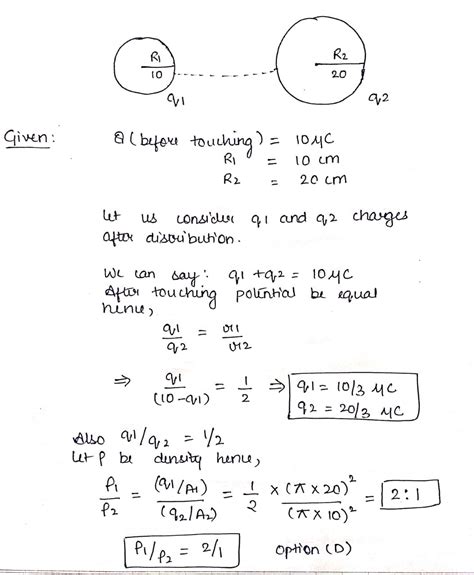 R1
10
R2
20
q1
q2
Given: Q (before touching) = 10 μC
R1 = 10 cm
R2 = 20 cm
let us consider q1 and q2 charges
after distribution.
We can say: q1 + q2 = 10 μC
After touching potential be equal
hence,
q1/q2 = r1/r2
⇒ q1/(10-q1) = 1/2 ⇒ q1 = 10/3 μC
q2 = 20/3 μC
Also q1/q2 = 1/2
let ρ be density hence,
ρ1/ρ2 = (q1/A1)/(q2/A2) = 1/2 × (π × 20)²/(π × 10)² = 2:1
ρ1/ρ2 = 2/1 option (D)